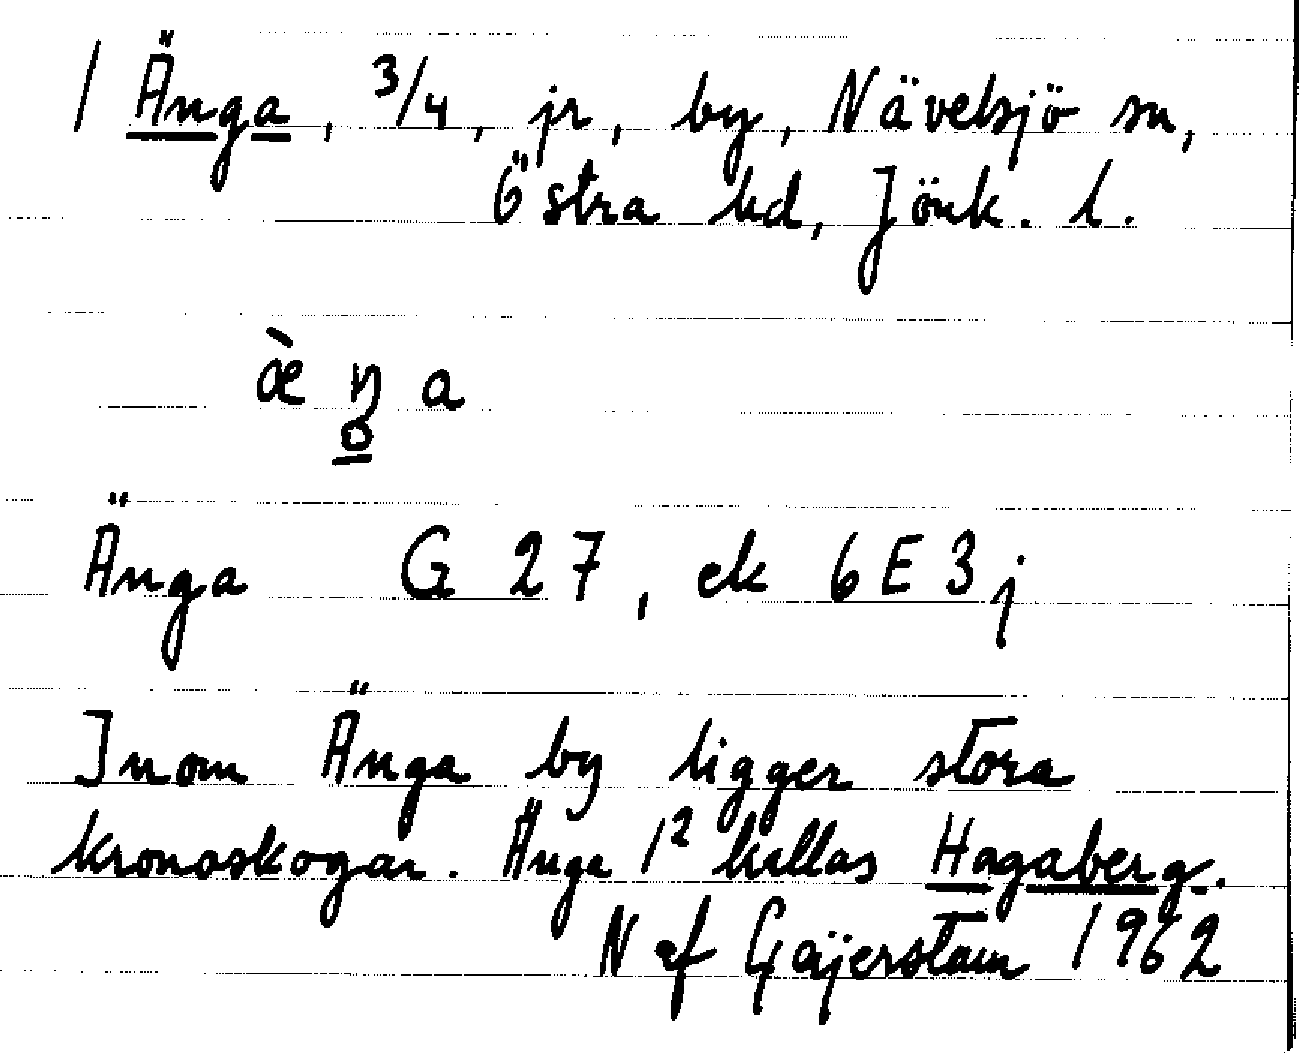 1 Änga, 3/4, jr, by, Nävelsjö sn,
Östra hd, Jönk. l.
æ̀ ŋ̱̊ a
Änga G 27, ek 6E3j
Inom Änga by ligger stora
kronoskogar. Änga 1² kallas Hagaberg.
N af Gajerstam 1962